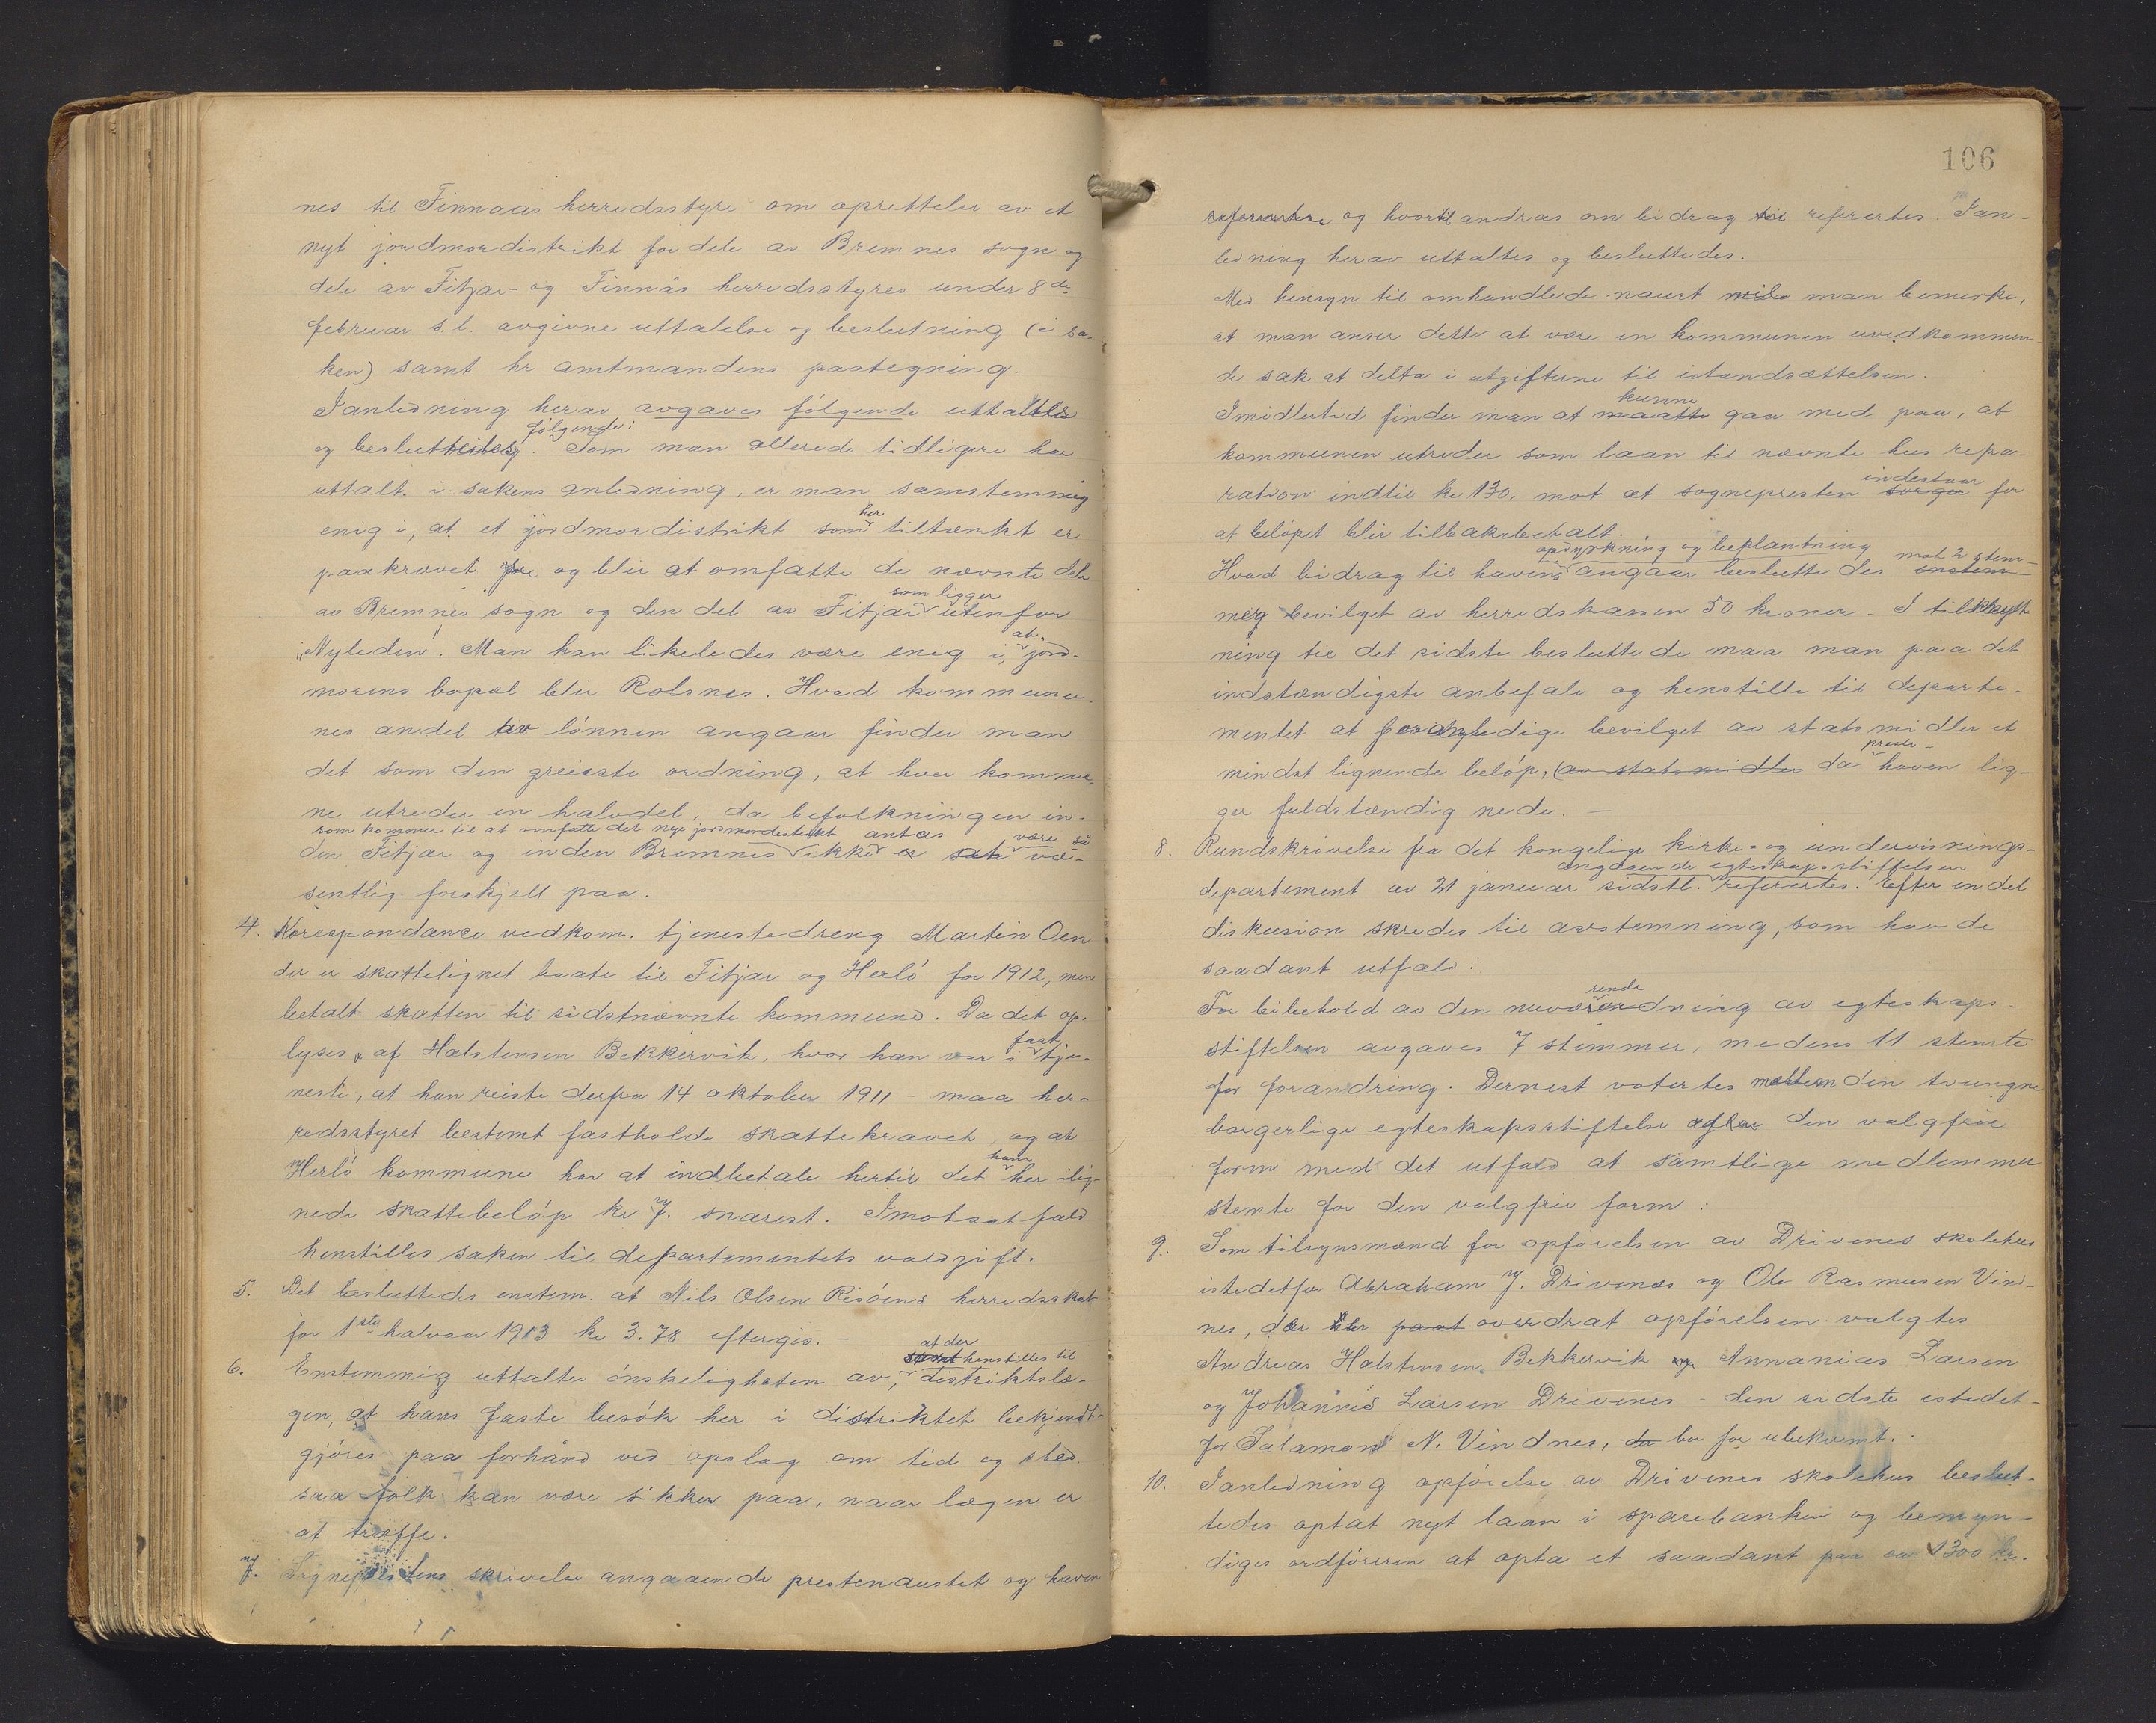 nes til Finnaas herredsstyre om oprettelse av et
nyt jordmordistrikt for dele av Bremnes sogn og
dele av Fitjar- og Finnås herredsstyres under 8de
februar s.l. avgivne uttalelse og beslutning (i sa-
ken) samt hr amtmandens paategning.
Ianledning herav avgaves følgende uttaltes
og besluttedes følgende: Som man allerede tidligere har
uttalt i sakens anledning, er man samstemmig
enig i, at et jordmordistrikt som her tiltænkt er
paakrævet og blir at omfatte de nævnte dele
av Bremnes sogn og den del av Fitjar som ligger utenfor
"Nyleden". Man kan likeledes være enig i, at jord-
morens bopæl blir Rolsnes. Hvad kommune-
nes andel av lönnen angaar finder man
det som den greieste ordning, at hver kommu-
ne utreder en halvdel, da befolkningen in-
som kommer til at omfatte det nye jordmordistrikt antas være så
den Fitjar og inden Bremnes ikke er væ-
sentlig forskjell paa.
4. Korespondance vedkom. tjenestedreng Martin Oen
der er skattelignet baate til Fitjar og Herlö for 1912, men
betalt skatten til sidstnævnte kommune. Da det op-
lyses af Halstensen Bekkervik, hvor han var i fast tje-
neste, at han reiste derfra 14 oktober 1911 – maa her-
redsstyret bestemt fastholde skattekravet, og at
Herlö kommune har at indbetale hertil det ham her ilig-
nede skattebelöp kr 7. snarest. Imotsat fald
henstilles saken til departementets voldgift.
5. Det besluttedes enstem. at Nils Olsen Risöens herredsskat
for 1ste halvaar 1913 kr 3.78 eftergis. –
6. Enstemmig uttaltes önskeligheten av, at der henstilles til distriktslæ-
gen, at hans faste besök her i distriktet bekjendt-
gjöres paa forhånd ved opslag om tid og sted.
saa folk kan være sikker paa, naar lægen er
at træffe.
7. Sogneprestens skrivelse angaaende prestenaustet og haven
106
og hvortil andras om bidrag refertes. Ian-
ledning herav uttaltes og besluttedes.
Med hensyn til omhandlede naust man bemerke,
at man anser dette at være en kommunen uvedkommen
de sak at delta i utgifterne til istandsættelsen.
Imidlertid finder man at maatte kunne gaa med paa, at
kommunen utreder som laan til nævnte hus repa-
ration indtil kr 130, mot at sognepresten sörger indestaar for
at belöpet blir tilbakebetalt.
Hvad bidrag til havens opdyrkning og beplantning angaar besluttedes enstem- mot 2 stem-
mer bevilget av herredskassen 50 kroner. I tilknyt
ning til det sidste besluttede maa man paa det
indstændigste anbefale og henstille til departe-
mentet at bevilget av statsmidler et
mindst lignende belöp, (av statsmidler da preste- haven lig-
ger fuldstændig nede. –
8. Rundskrivelse fra det kongelige kirke- og undervisnings-
departement av 21 januar sidstl. angaaende egteskapsstiftelsen refertes. Efter endel
diskusion skredes til avstemning, som havde
saadant utfald:
For bibehold av den nuværende ordning av egteskaps-
stiftelsen avgaves 7 stemmer, medens 11 stemte
for forandring. Dernest votertes mellem den tvungne
borgerlige egteskapsstiftelse eller den valgfrie
form med det utfald at samtlige medlemmer
stemte for den valgfrie form:
9. Som tilsynsmænd for opförelsen av Drivenes skolehus
istedetfor Abraham J. Drivenes og Ole Rasmusen Vind-
nes, der har paat overdrat opförelsen valgtes
Andreas Halstensen Bekkervik og Annanias Larsen
og Johannes Larsen Drivenes – den sidste istedet-
for Salamon N. Vindnes, der bor for ubekvemt.
10. Ianledning opförelse av Drivenes skolehus beslut-
tedes optat nyt laan i sparebanken og bemyn-
diges ordföreren at opta et saadant paa 1300 kr.